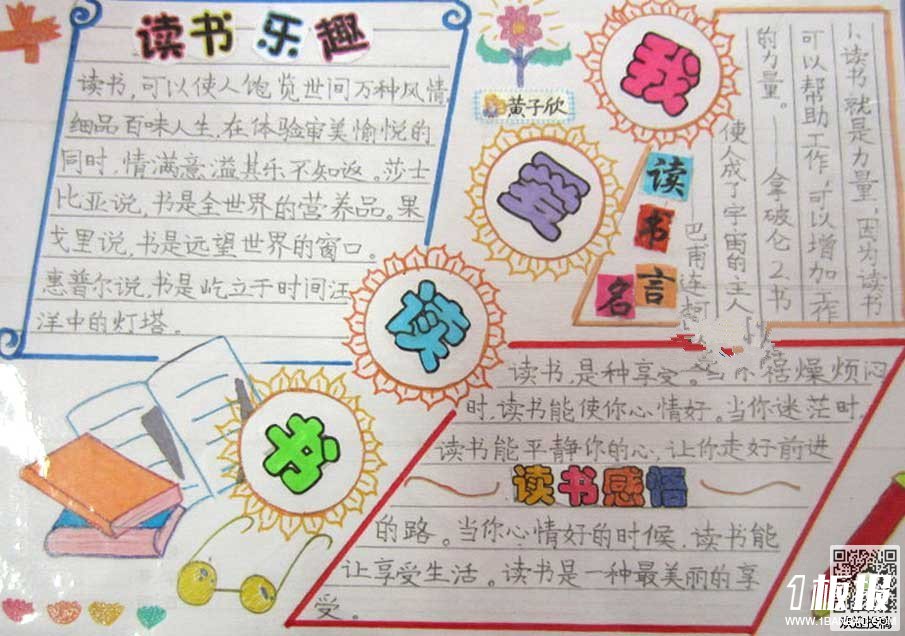 读书乐趣
读书,可以使人饱览世间万种风情,
细品百味人生,在体验审美愉悦的
同时,情满意溢其乐不知返。莎士
比亚说,书是全世界的营养品。果
戈里说,书是远望世界的窗口。
惠普尔说,书是屹立于时间汪
洋中的灯塔。
黄子欣
我
爱
读
书
读书名言
1、读书就是力量,因为读书
可以帮助工作,可以增加工作
的力量。 拿破伦 2.书
使人成了宇宙的主人
巴甫连柯
读书,是种享受。当你
燥烦闷
时,读书能使你心情好。当你迷茫时,
读书能平静你的心,让你走好前进
读书感悟
的路。当你心情好的时候,读书能
让享受生活。读书是一种最美丽的享
受。
1板报
WWW.1BANBAO.COM
欢迎投稿